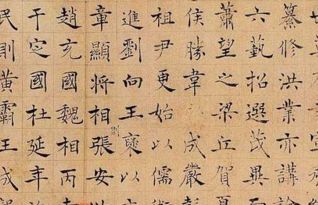 纂修洪業亦講論
六藝招選茂異而
蕭望之梁丘賀夏
侯勝韋成嚴彭
祖尹更始以儒
進劉向王褒以
章顯將相張安
趙充國魏相丙
于定國杜延年
民則黃霸王成